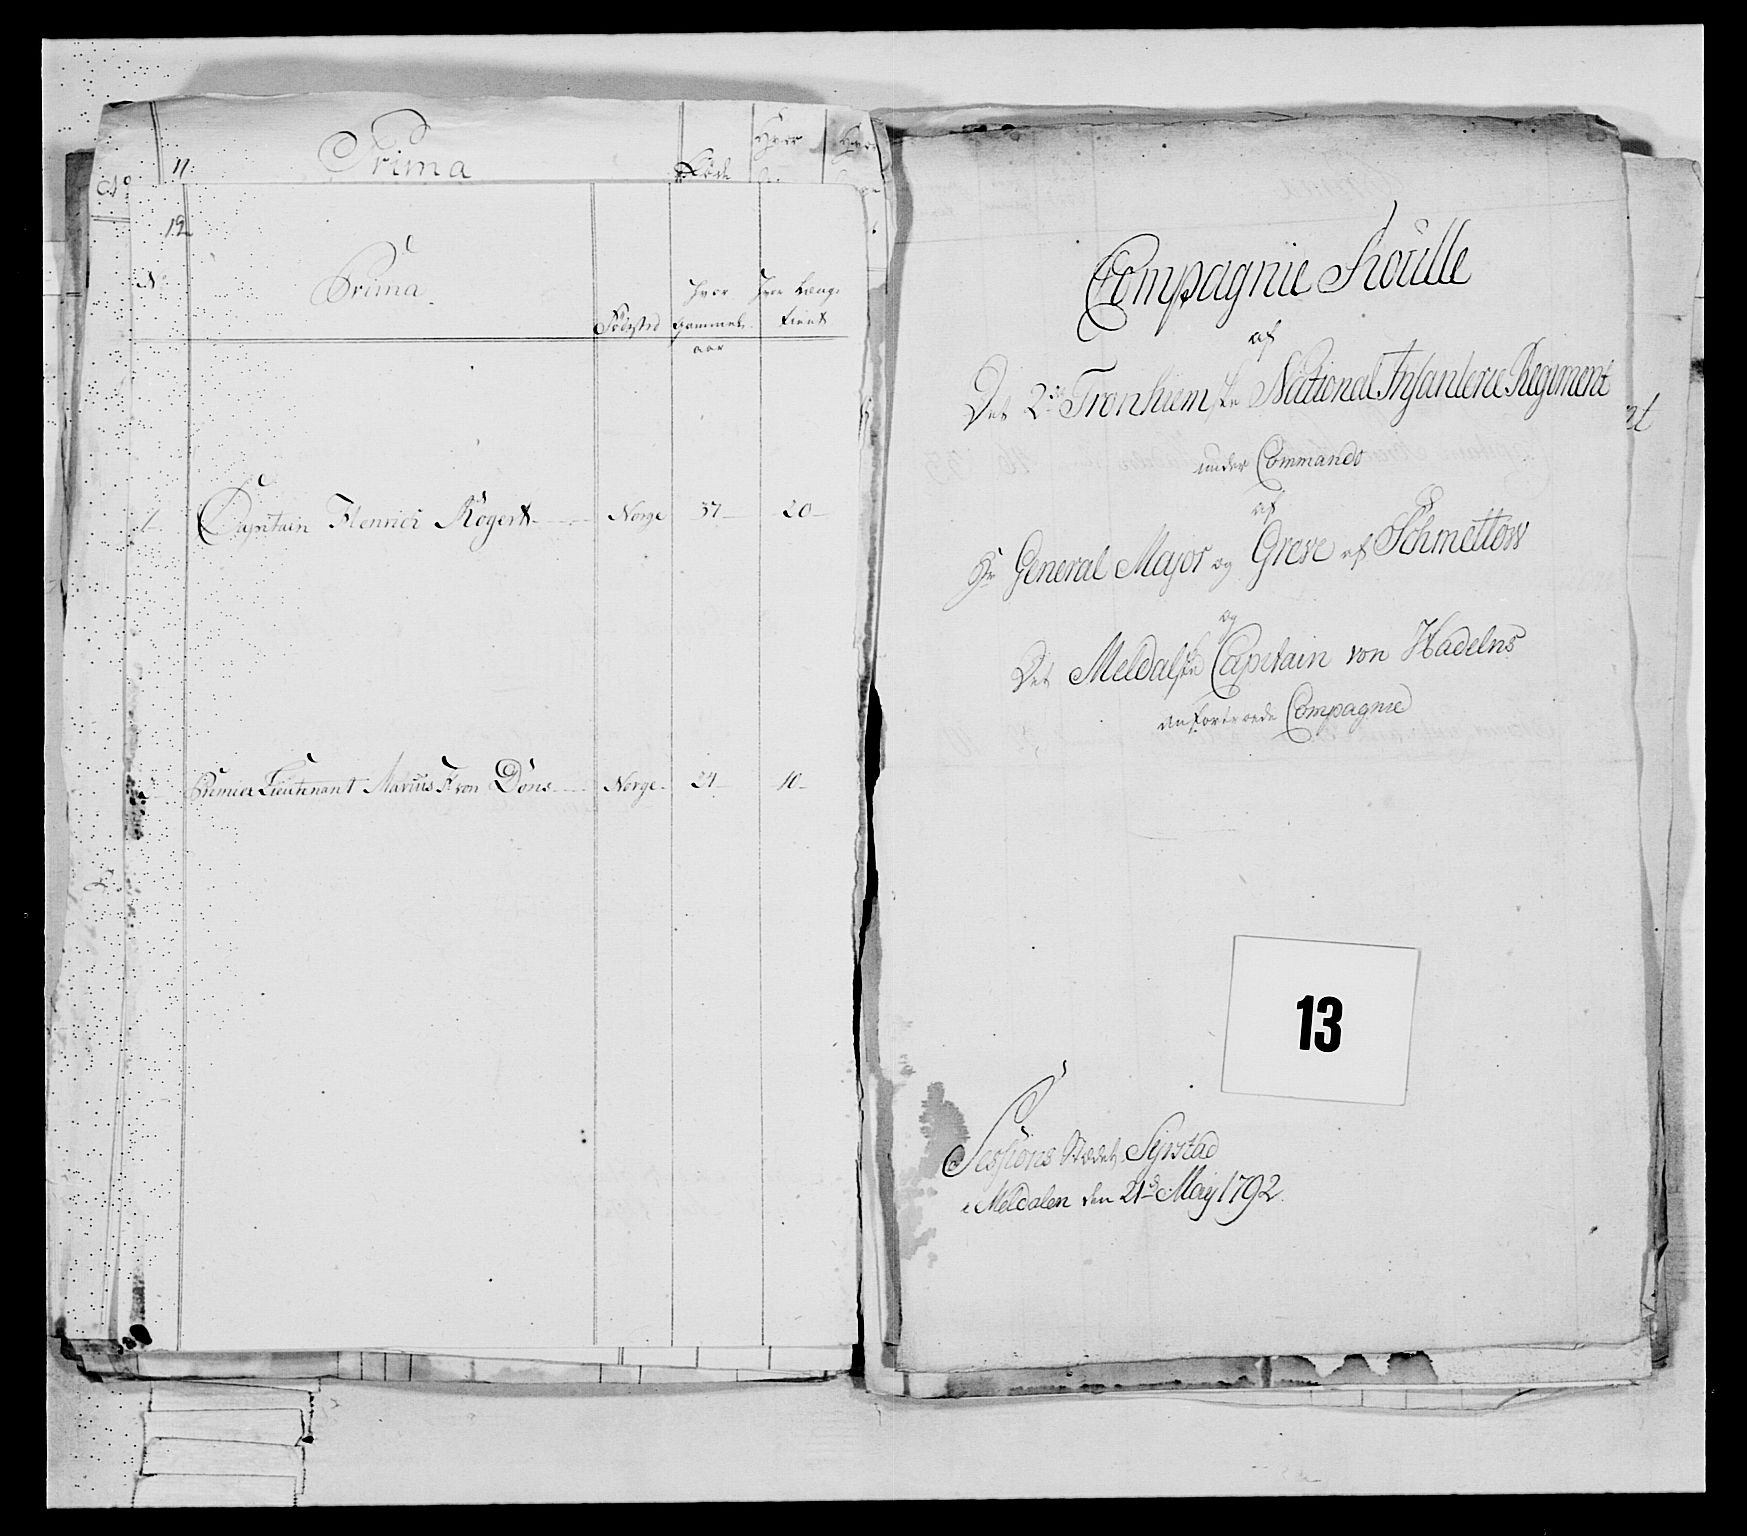 11
Prima
Føde
Hvor
Hvor
No
12
No
Prima
Fødested
Hvor
gammel
aar
Hvor Længe
tient
1
Capitain Henrici Rögert
Norge
37
20
Premier Lieutenant Marius F von Döns
Norge
24
10
Compagnie Roulle
af
Det 2de Tronhiemske National Infanterie Regiment
under Commando
af
Hr General Major og Greve af Schmettow
og
Det Meldalske Capitain von Hadelns
anfortroede Compagnie
13
Sessions Stædet Syrstad
i Meldalen den 21de May 1792.